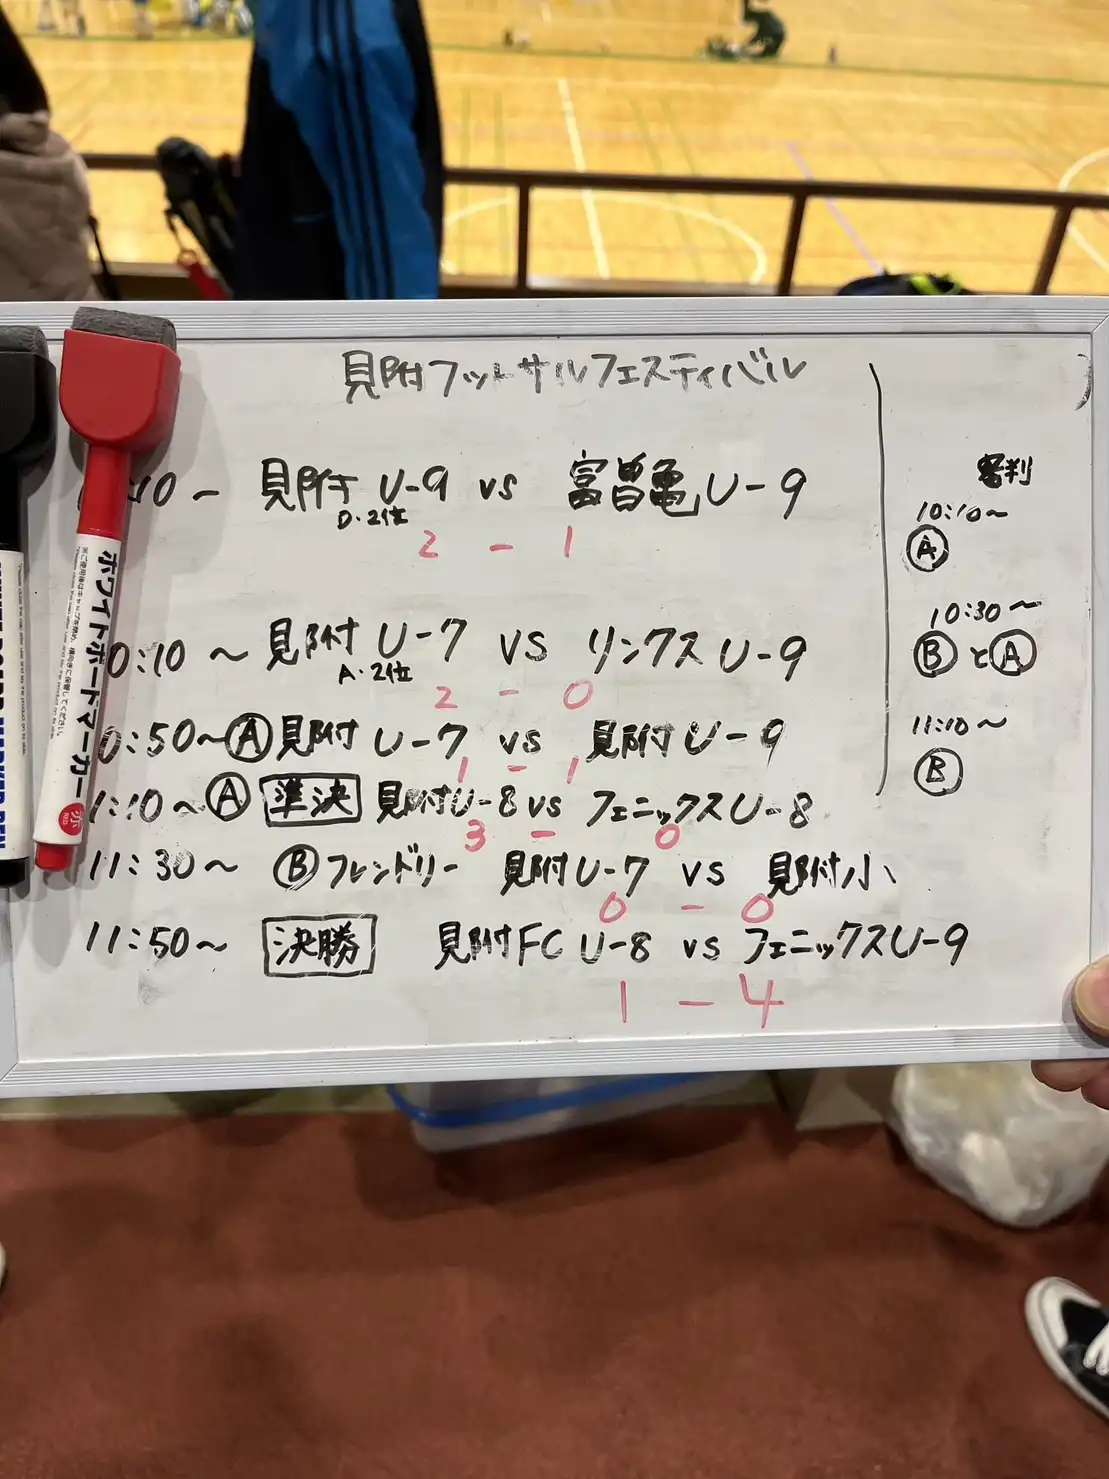 見附フットサルフェスティバル
10~ 見附 U-9 vs 富曽亀 U-9
D・2位
2 - 1
0:10~ 見附 U-7 vs リンクス U-9
A・2位
2 - 0
0:50~ Ⓐ 見附 U-7 vs 見附 U-9
1 - 1
1:10~ Ⓐ 準決 見附U-8 vs フェニックスU-8
3 - 0
11:30~ Ⓑ フレンドリー 見附U-7 vs 見附小
0 - 0
11:50~ 決勝 見附FC U-8 vs フェニックスU-9
1 - 4
審判
10:10~
Ⓐ
10:30~
ⒷとⒶ
11:10~
Ⓑ
ホワイトボードマーカー
赤
RED